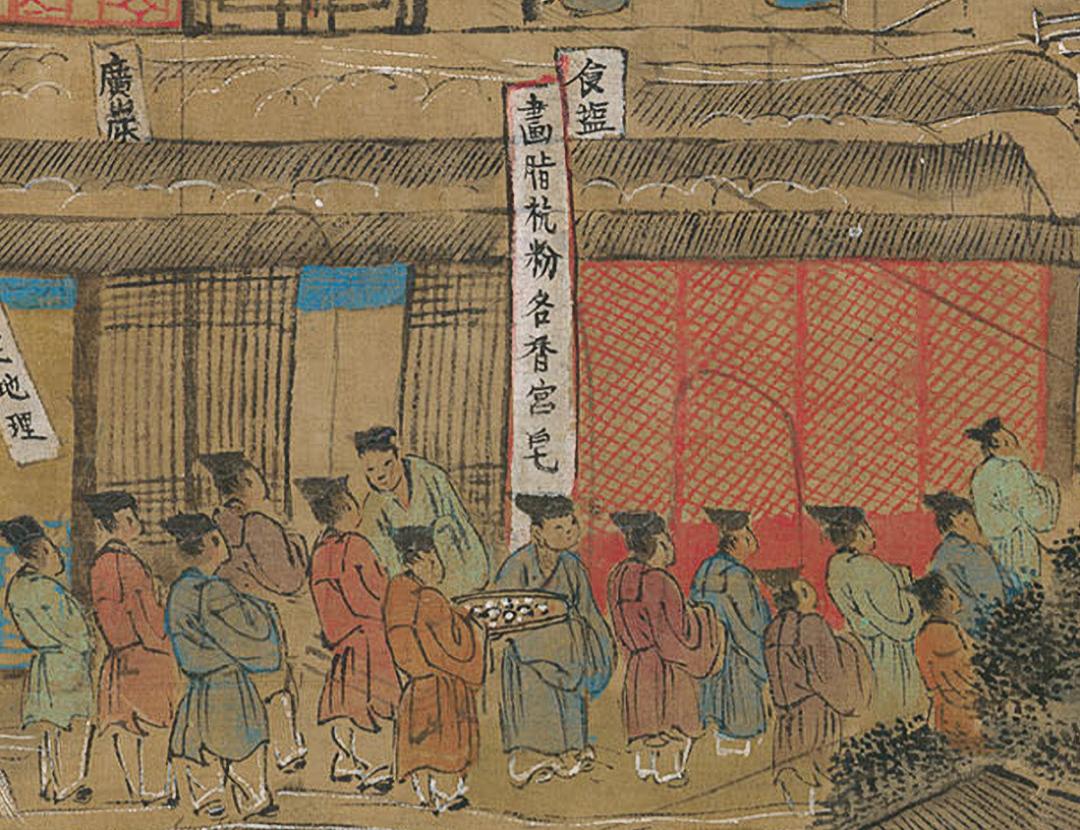 食塩
畫脂杭粉各香宮皂
廣炭
地理